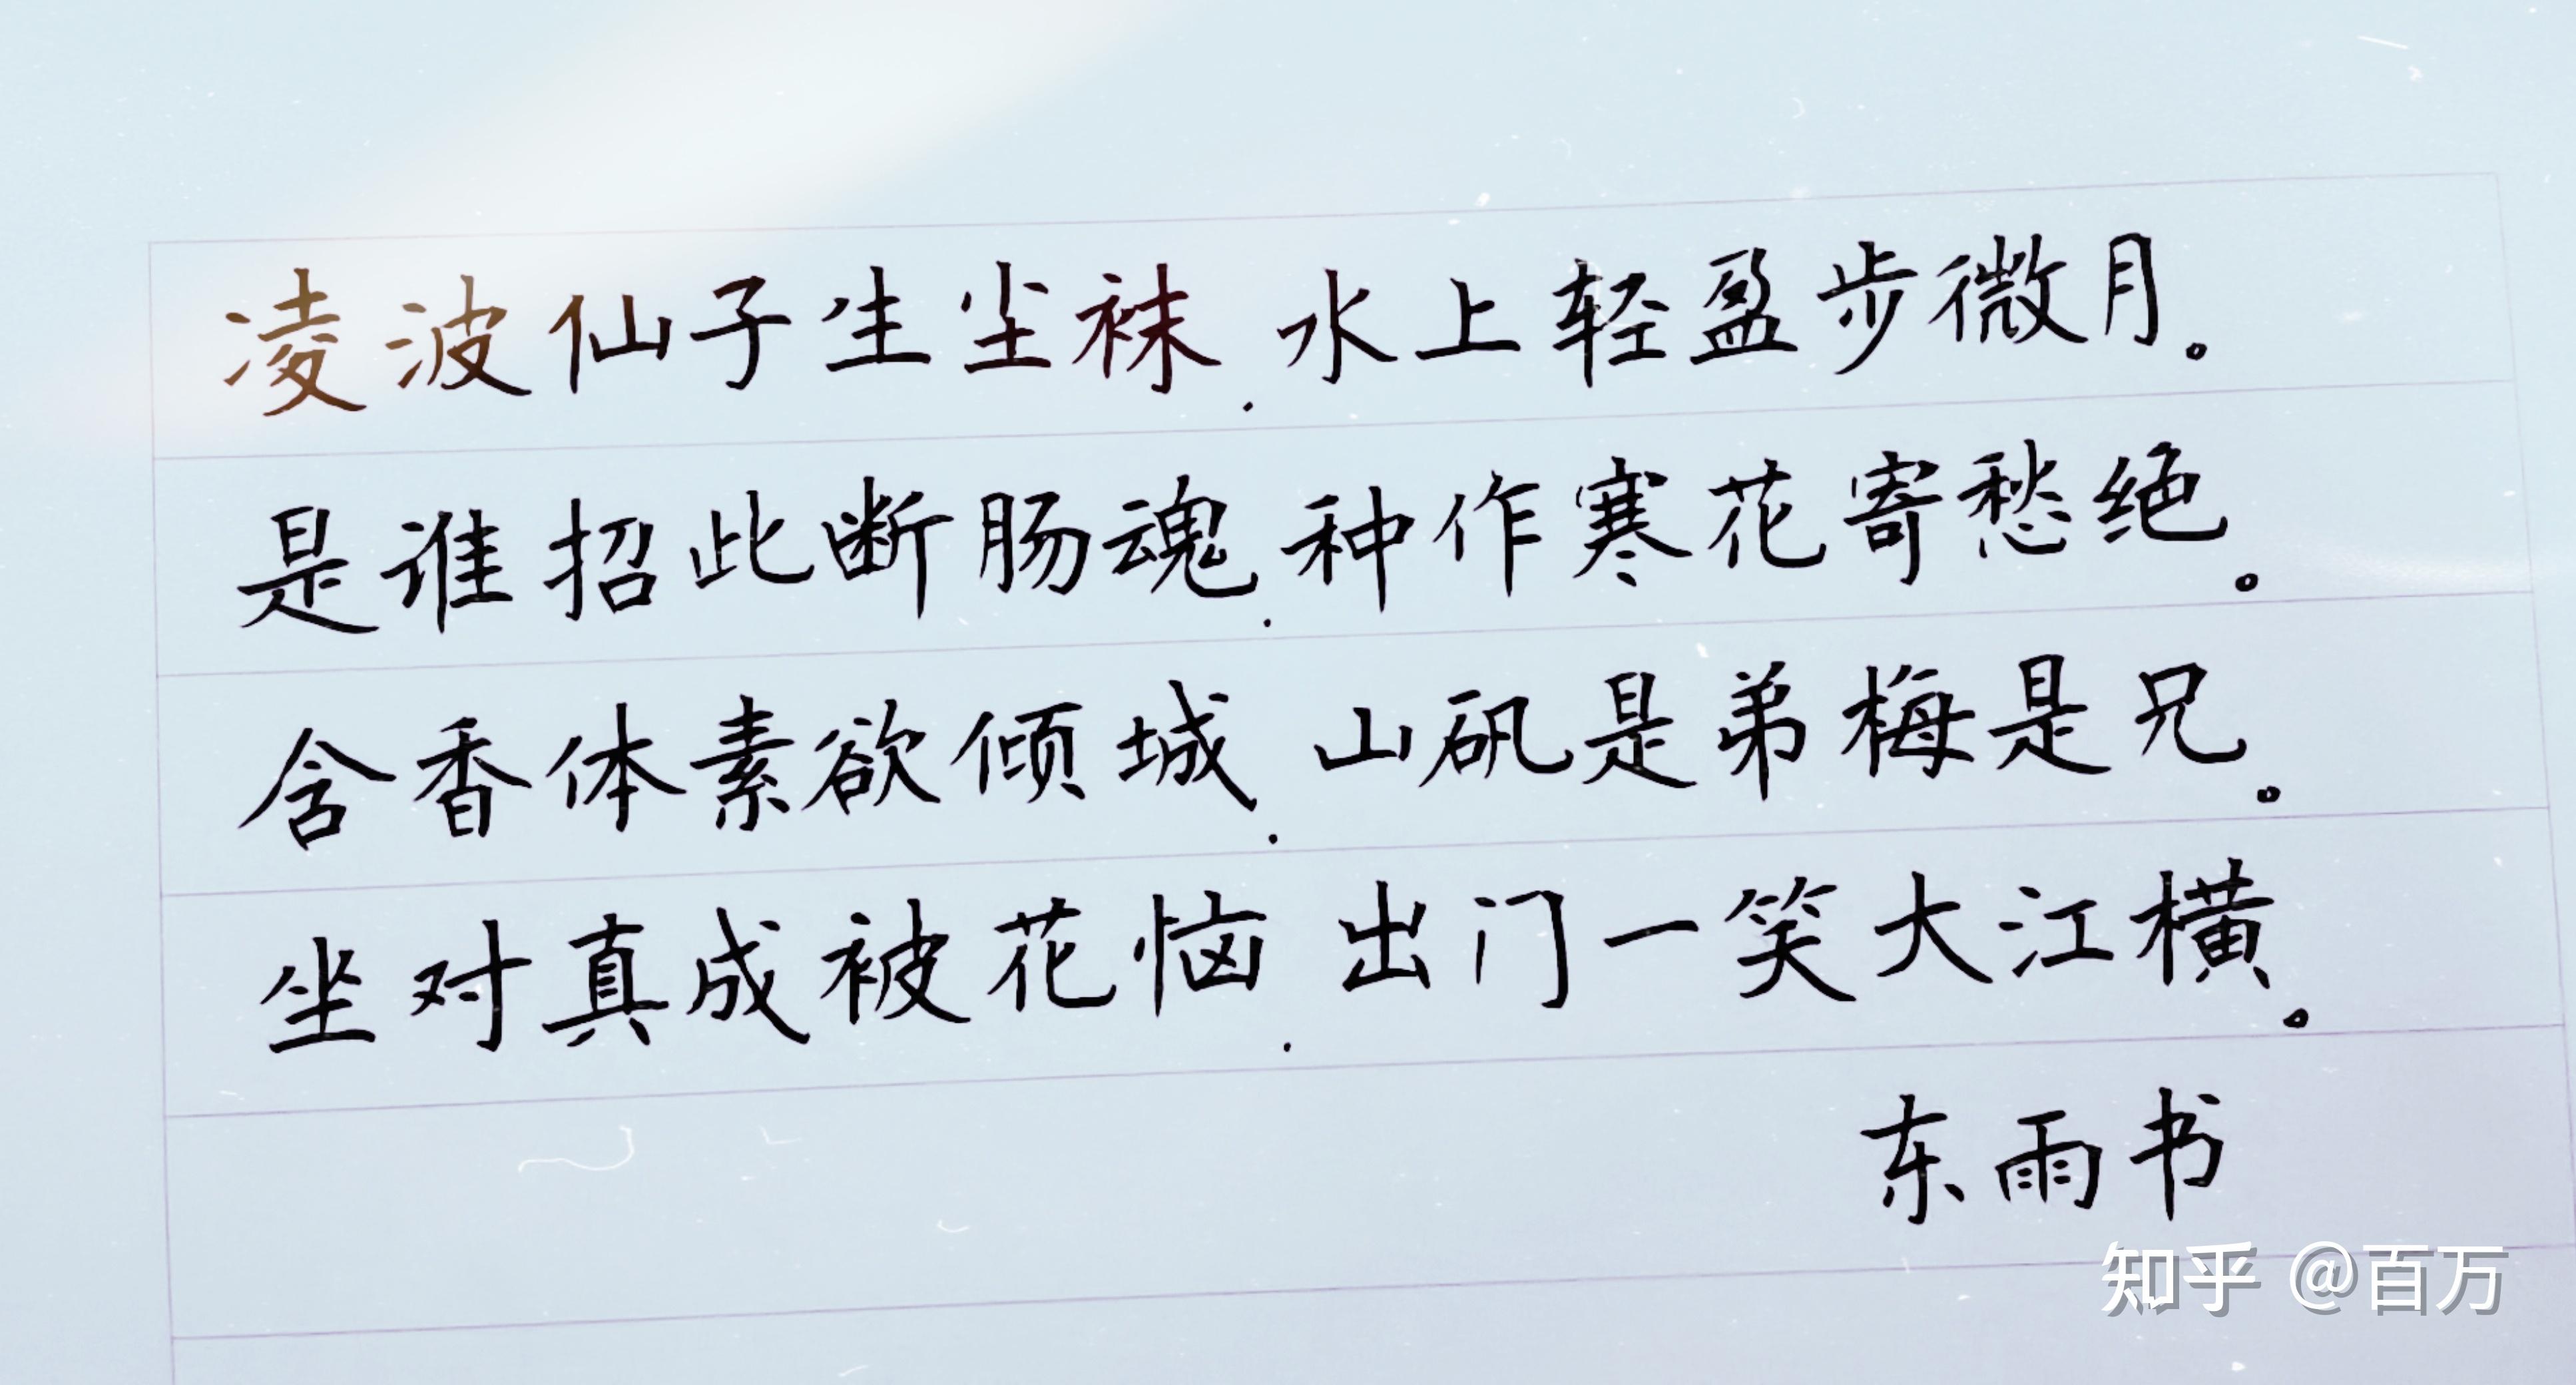 凌波仙子生尘袜.水上轻盈步微月。
是谁招此断肠魂.种作寒花寄愁绝。
含香体素欲倾城.山矾是弟梅是兄。
坐对真成被花恼.出门一笑大江横。
东雨书
知乎 @百万